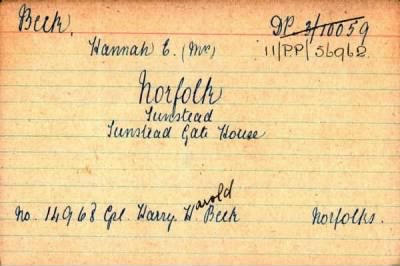 Beck. DP. 2/10059
Hannah E. (Mrs) 11/PP/56962
Norfolk
Tunstead
Tunstead Gate House
No. 14968 Cpl. Harry Harold Beck Norfolks.